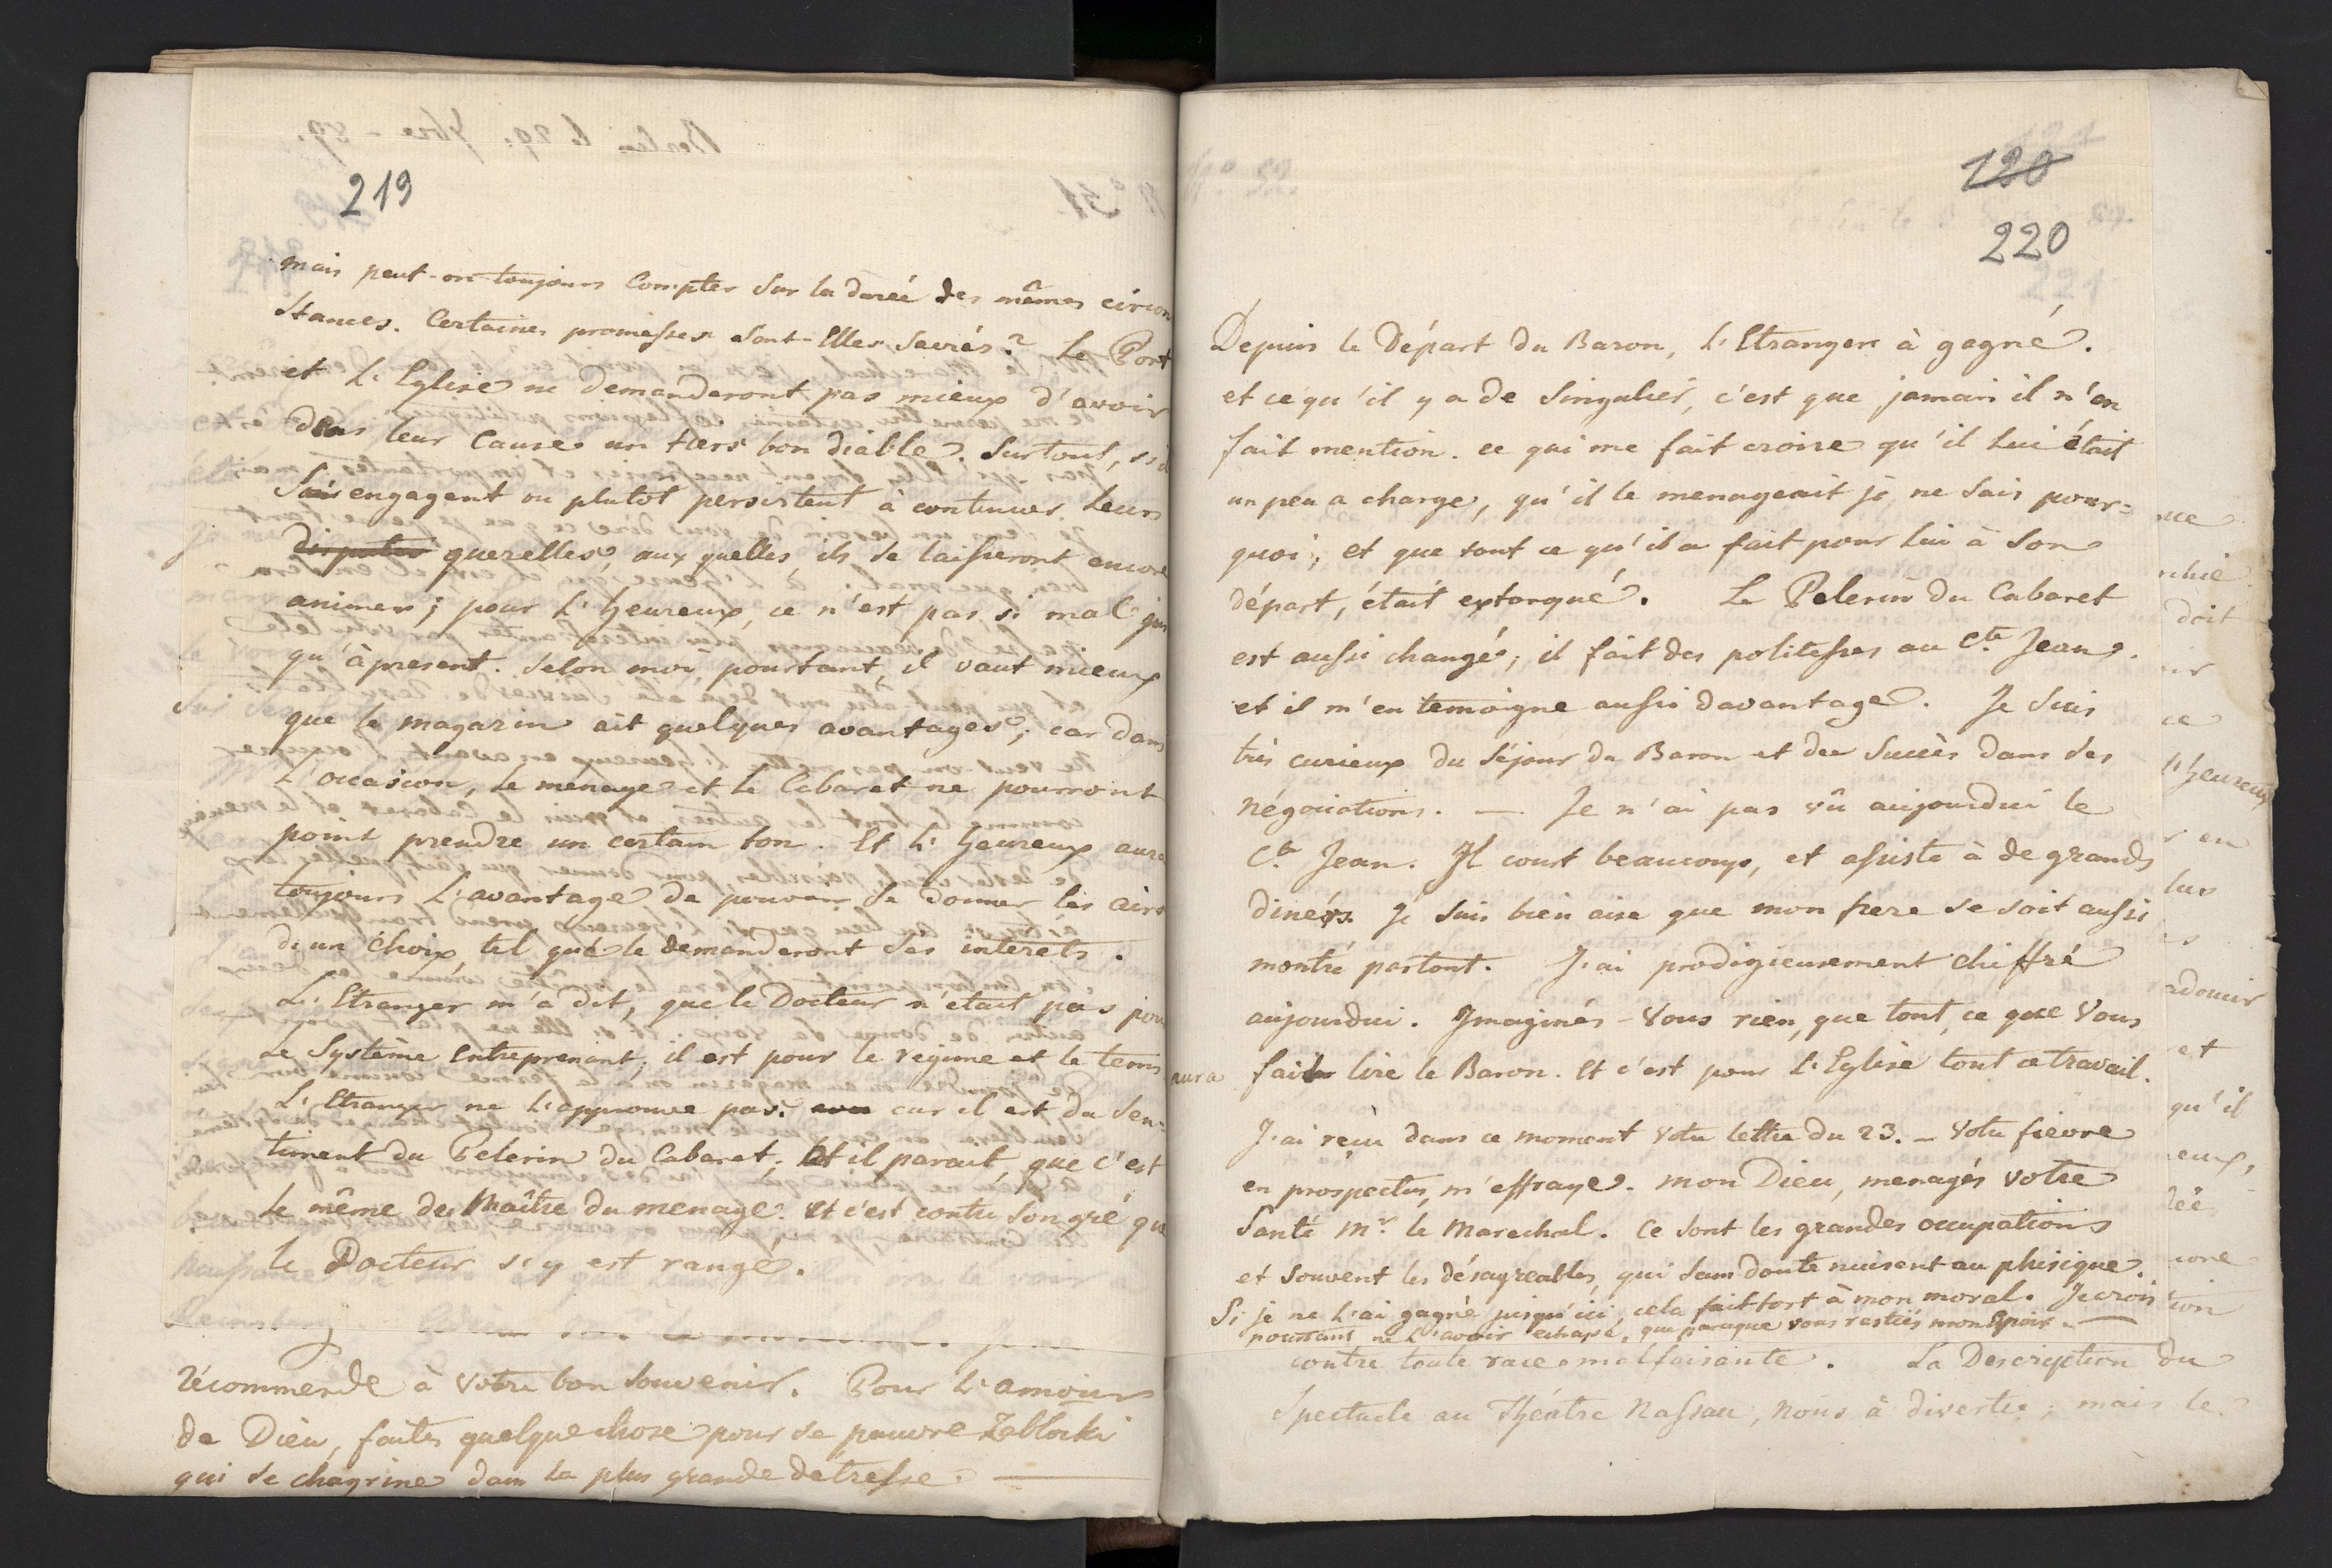 219
mais peut-on toujours Compter sur la dureé des mêmes circon
stances. Certaines promesses sont-Elles sacrés? Le Port
et L'Eglise ne demanderont pas mieux d'avoir
dans leur Cause un tiers bon diable. Surtout, s'il
s'engagent ou plutot persistent à continuer leurs
disputes querelles, aux quelles, ils se laisseront encore
animer; pour L'heureux, ce n'est pas si mal jus
qu'àpresent. Selon moi, pourtant, il vaut mieux
que le magazin ait quelques avantages; car dans
L'occasion, le menage et le Cabaret ne pourront
point prendre un certain ton. Et L'heureux aura
toujours L'avantage de pouvoir se donner les airs
d'un choix, tel que le demanderont ses interets.
L'Etranger m'a dit, que le Docteur n'etait pas pour
Le Système Entreprenant, il est pour le regime et le tems
L'Etranger ne L'approuve pas. car il est du Sen=
timent du Pelerin du Cabaret; Et il parait, que c'est
Le même du Maître du menage. Et c'est contre son gré que
le Docteur s'y est rangé.
récommende à Votre bon souvenir. Pour L'amour
de Dieu, faites quelque chose pour se pauvre Zablocki
qui se chagrine dans la plus grande detresse. —
120
220
Depuis le Départ du Baron, L'Etranger à gagné.
et ce qu'il y a de Singulier, c'est que jamais il n'en
fait mention. ce qui me fait croire qu'il lui était
un peu a charge, qu'il le menageait je ne sais pour=
quoi, et que tout ce qu'il a fait pour lui à son
départ, était extorqué. Le Pelerin du Cabaret
est aussi changé; il fait des politesses au Cte Jean.
et il m'en temoigne aussi davantage. Je suis
très curieux du Séjour du Baron et des Succès dans ses
négociations. — Je n'ai pas vû aujourdui le
Cte Jean. Il court beaucoup, et assiste à de grands
dinérs. Je suis bien aise que mon frere se soit aussi
montré partout. J'ai prodigieusement chiffré
aujourdui. Imaginés-Vous rien, que tout, ce que Vous
fait lire le Baron. Et c'est pour L'Eglise tout ce travail.
J'ai reçu dans ce moment Votre lettre du 23. – Votre fievre
en prospectus, m'effraye. mon Dieu, menagés Votre
Santé Mr le Marechal. Ce sont les grandes occupations
et souvent les désagreables, qui sans doute nuisent au phisique.
Si je ne L'ai gagné jusqu'ici, cela fait tort à mon moral. Je crois
pourtant ne L'avoir echapé, que parceque vous restiés mon Espoir. —
contre toute race malfaisante. La Description du
Spectacle au Théatre Nassau, nous à divertie; mais le